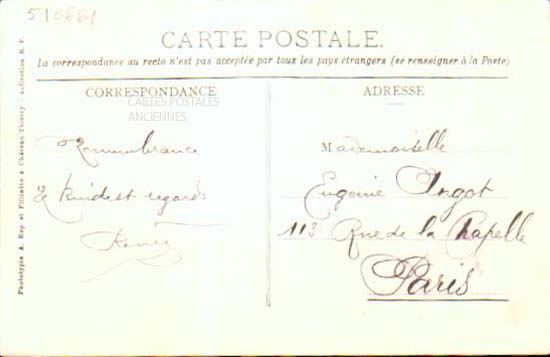 510661
CARTE POSTALE.
La correspondance au recto n'est pas acceptée par tous les pays étrangers (se renseigner à la Poste)
CORRESPONDANCE
CARTES POSTALES
ANCIENNES
Remembrance
& Kindest regards
ADRESSE
Mademoiselle
Eugénie Argot
113 Rue de la Chapelle
Paris
Phototypie A. Rep et Filliette à Château-Thierry - collection R. F.